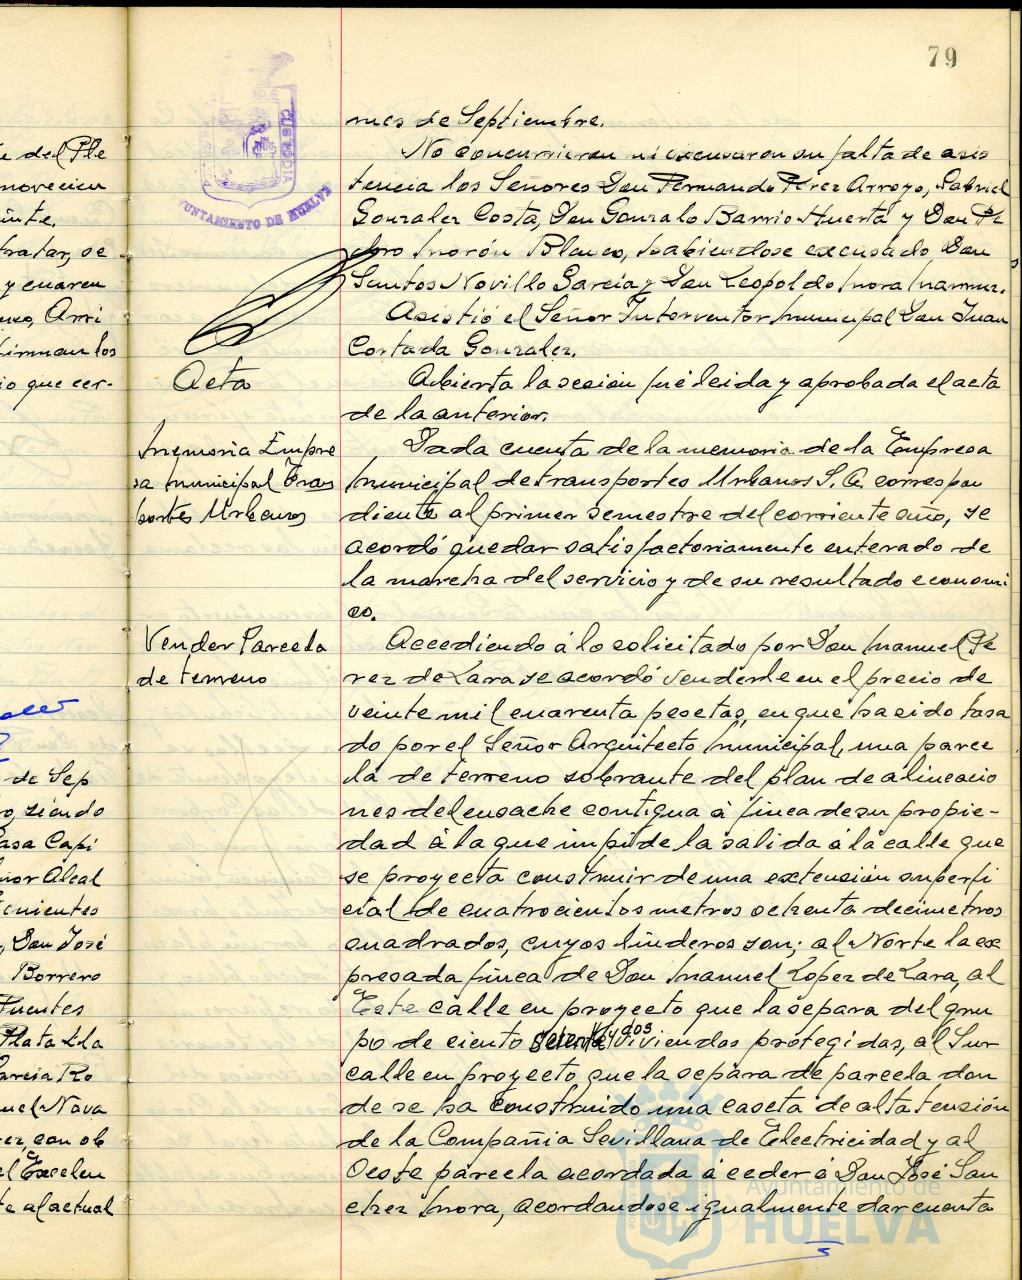 79
CUSTODIA
AYUNTAMIENTO DE HUELVA
mes de Septiembre.
No concurrieron ni excusaron su falta de asis
tencia los Señores Don Fernando Pérez Arroyo, Gabriel
Gonzalez Costa, Don Gonzalo Barrio Huerta y Don Pe
dro Morón Blanco, habiendose excusado Don
Santos Novillo García y Don Leopoldo Mora
Asistió el Señor Interventor Municipal Don Juan
Cortada Gonzalez.
Acta
Abierta la sesión fué leida y aprobada el acta
de la anterior.
Memoria Empre
sa Municipal Trans
portes Urbanos
Dada cuenta de la memoria de la Empresa
Municipal de transportes Urbanos S.A. correspon
diente al primer semestre del corriente año, se
acordó quedar satisfactoriamente enterado de
la marcha del servicio y de su resultado economi
co.
Vender Parcela
de terreno
Accediendo á lo solicitado por Don Manuel Pe
rez de Lara se acordó venderle en el precio de
veinte mil cuarenta pesetas, en que ha sido tasa
do por el Señor Arquitecto Municipal, una parce
la de terreno sobrante del plan de alineacio
nes del ensache contigua á finca de su propie-
dad á la que impide la salida á la calle que
se proyecta construir de una extensión superfi
cial de cuatrocientos metros ochenta decimetros
cuadrados, cuyos linderos son; al Norte la ex
presada finca de Don Manuel Lopez de Lara, al
Este calle en proyecto que la separa del gru
po de ciento setenta y dos viviendas protegidas, al Sur
calle en proyecto que la separa de parcela don
de se ha construido una caseta de alta tensión
de la Compañia Sevillana de Electricidad y al
Oeste parcela acordada á ceder á Don José San
chez Mora, acordandose igualmente dar cuenta
e del Ple
novecien
tratar, se
y cuaren
Arri
firman los
io que cer-
de Sep
o, siendo
Casa Capi
ñor Alcal
Tenientes
, Don José
Borrero
Fuentes
Plata Lla
Garcia Ro
uel Nava
rez, con ob
el Excelen
te al actual
Ayuntamiento de
HUELVA